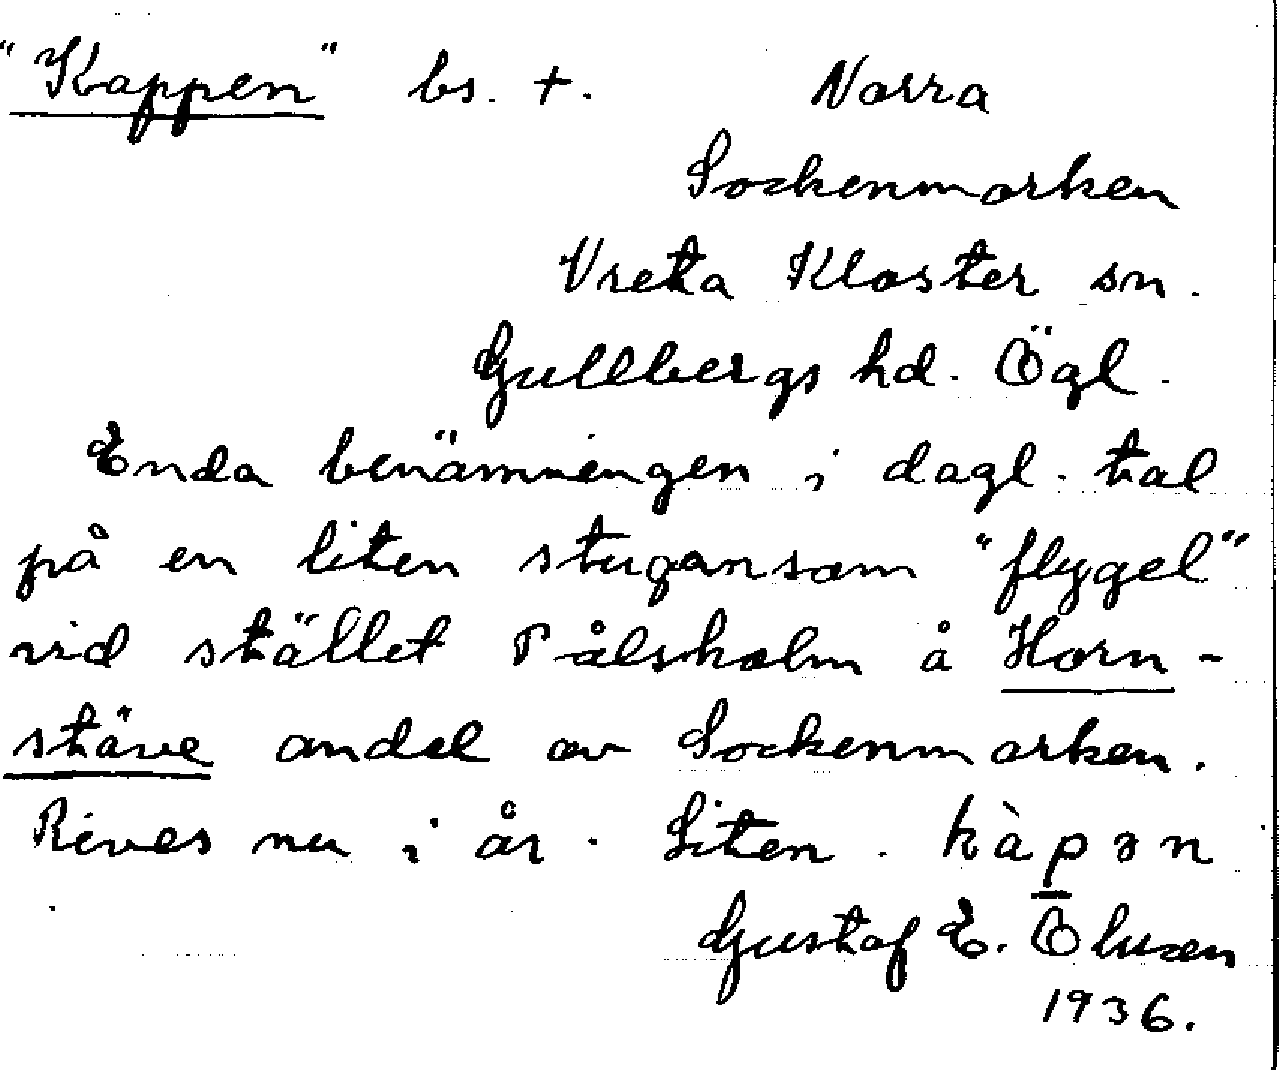 "Kappen" bs. +. Norra
Sockenmarken
Vreta Kloster sn.
Gullbergs hd. Ögl.
Enda benämningen i dagl. tal
på en liten stuga som "flygel"
vid stället Pålsholm å Horn-
stäve andel av Sockenmarken.
Rives nu i år. Liten. kàpən
Gustaf E.
1936.